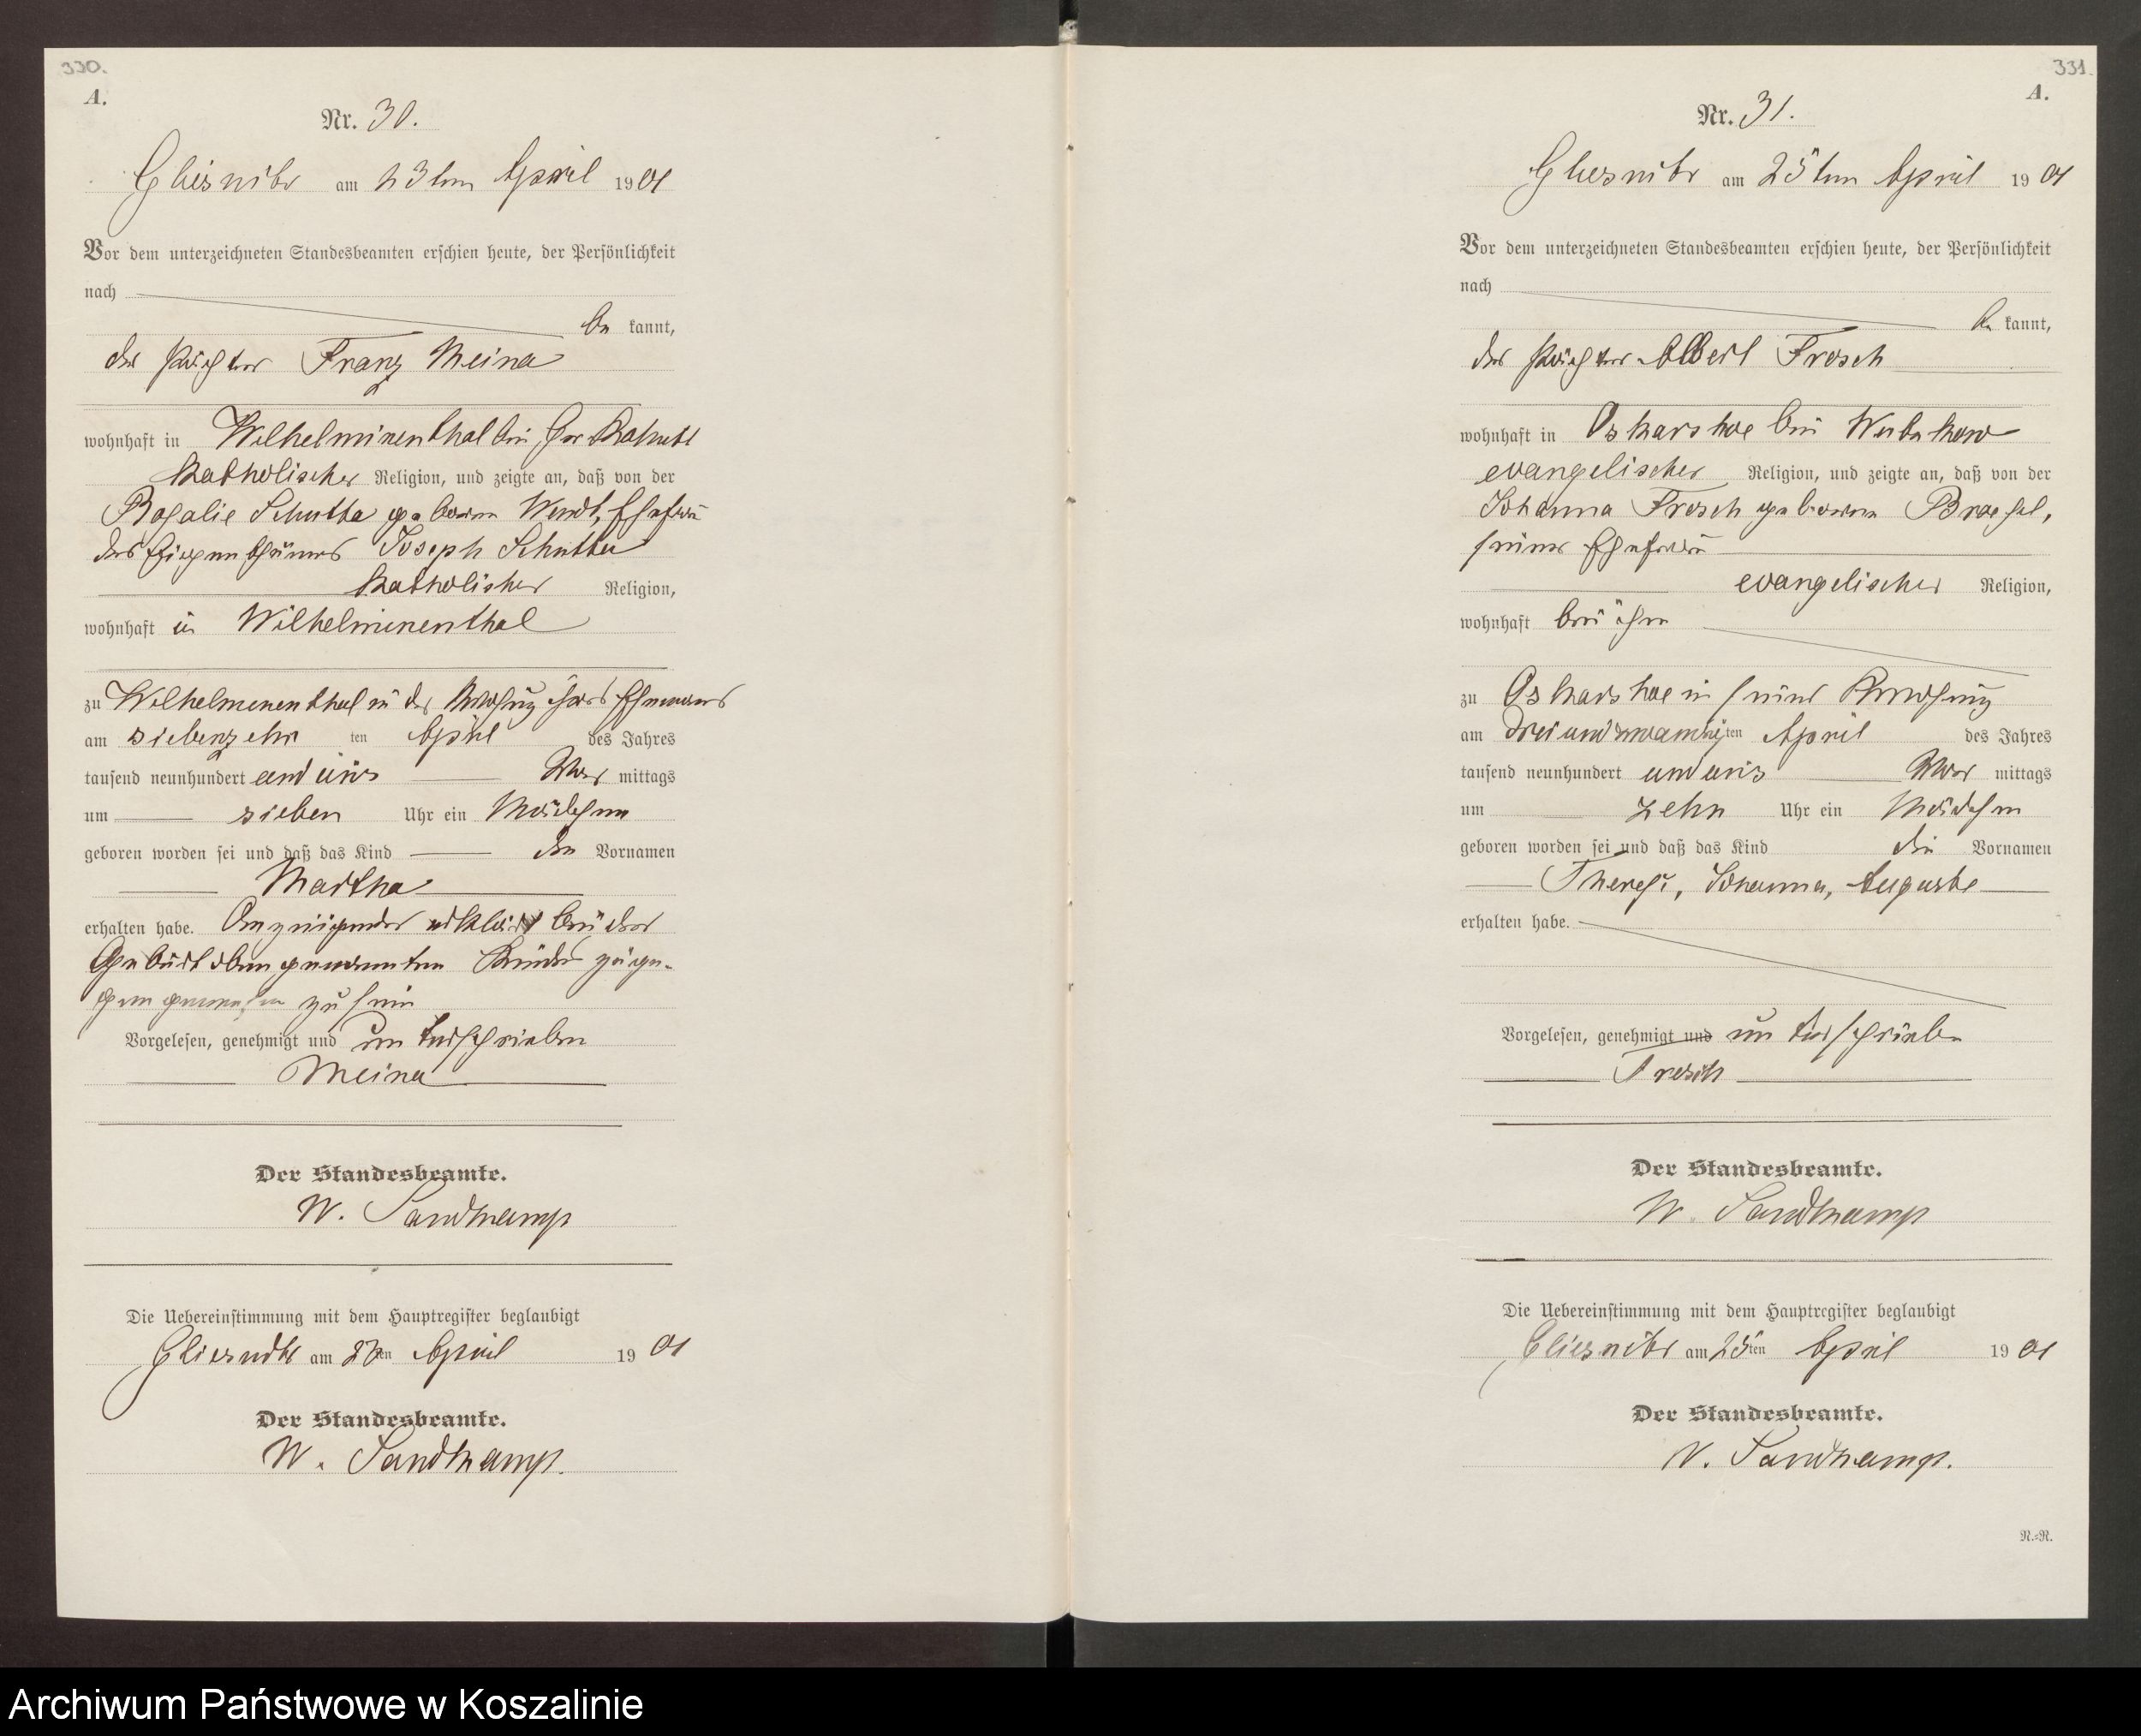 330.
A.
Nr. 30.
Gliesnitz am 23ten April 1901
Vor dem unterzeichneten Standesbeamten erschien heute, der Persönlichkeit
nach
be kannt,
der Pächter Franz Meina
wohnhaft in Wilhelminenthal bei
katholischer Religion, und zeigte an, daß von der
Rosalie Schutta geborene Wendt, Ehefrau
des Eigenthümers Joseph Schutta
katholischer Religion,
wohnhaft in Wilhelminenthal
zu Wilhelminenthal in der Wohnung ihres Ehemannes
am siebenzehn ten April des Jahres
tausend neunhundert und eins Vor mittags
um sieben Uhr ein Mädchen
geboren worden sei und daß das Kind den Vornamen
Martha
erhalten habe. Anzeigender erklärt bei der
Geburt oben genannten Kindes zuge-
gen gewesen zu sein
Vorgelesen, genehmigt und unterschrieben
Meina
Der Standesbeamte.
W. Sandkamp
Die Uebereinstimmung mit dem Hauptregister beglaubigt
Gliesnitz am ten April 1901
Der Standesbeamte.
W. Sandkamp.
331.
A.
Nr. 31.
Gliesnitz am 25ten April 1901
Vor dem unterzeichneten Standesbeamten erschien heute, der Persönlichkeit
nach
be kannt,
der Pächter Albert Frosch
wohnhaft in Oskarshoe bei
evangelischer Religion, und zeigte an, daß von der
Johanna Frosch geborene
seiner Ehefrau
evangelischer Religion,
wohnhaft bei ihm
zu Oskarshoe in seiner Wohnung
am dreiundzwanzigten April des Jahres
tausend neunhundert und eins Vor mittags
um zehn Uhr ein Mädchen
geboren worden sei und daß das Kind die Vornamen
Therese, Johanna, Auguste
erhalten habe.
Vorgelesen, genehmigt und unterschrieben
Frosch
Der Standesbeamte.
W. Sandkamp
Die Uebereinstimmung mit dem Hauptregister beglaubigt
Gliesnitz am 25ten April 1901
Der Standesbeamte.
W. Sandkamp.
N.=N.
Archiwum Państwowe w Koszalinie